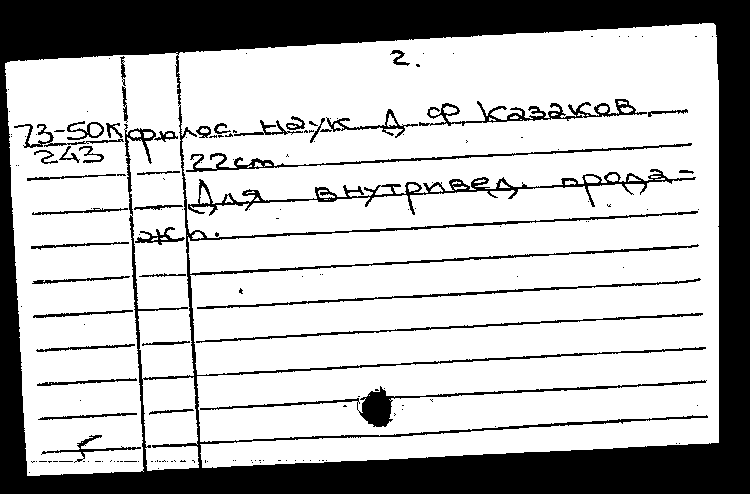 2.
73-50К филос. наук Д. Ф. Казаков.
243 22см.
Для внутривед. прода-
жи.